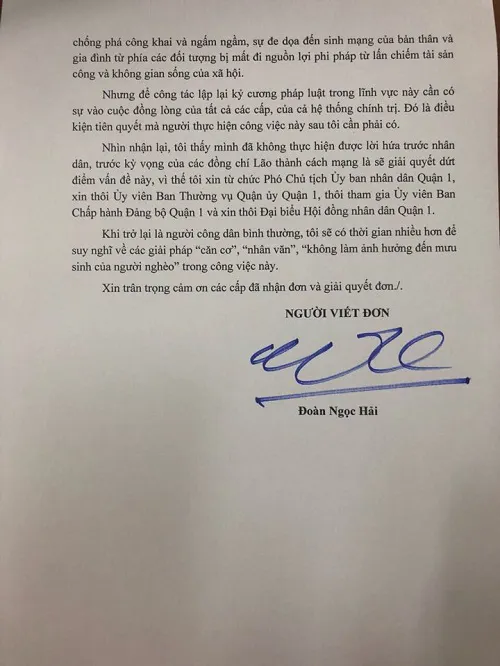 chống phá công khai và ngấm ngầm, sự đe dọa đến sinh mạng của bản thân và
gia đình từ phía các đối tượng bị mất đi nguồn lợi phi pháp từ lấn chiếm tài sản
công và không gian sống của xã hội.
Nhưng để công tác lập lại kỷ cương pháp luật trong lĩnh vực này cần có
sự vào cuộc đồng lòng của tất cả các cấp, của cả hệ thống chính trị. Đó là điều
kiện tiên quyết mà người thực hiện công việc này sau tôi cần phải có.
Nhìn nhận lại, tôi thấy mình đã không thực hiện được lời hứa trước nhân
dân, trước kỳ vọng của các đồng chí Lão thành cách mạng là sẽ giải quyết dứt
điểm vấn đề này, vì thế tôi xin từ chức Phó Chủ tịch Ủy ban nhân dân Quận 1,
xin thôi Ủy viên Ban Thường vụ Quận ủy Quận 1, thôi tham gia Ủy viên Ban
Chấp hành Đảng bộ Quận 1 và xin thôi Đại biểu Hội đồng nhân dân Quận 1.
Khi trở lại là người công dân bình thường, tôi sẽ có thời gian nhiều hơn để
suy nghĩ về các giải pháp “căn cơ”, “nhân văn”, “không làm ảnh hưởng đến mưu
sinh của người nghèo” trong công việc này.
Xin trân trọng cảm ơn các cấp đã nhận đơn và giải quyết đơn./.
NGƯỜI VIẾT ĐƠN
Đoàn Ngọc Hải